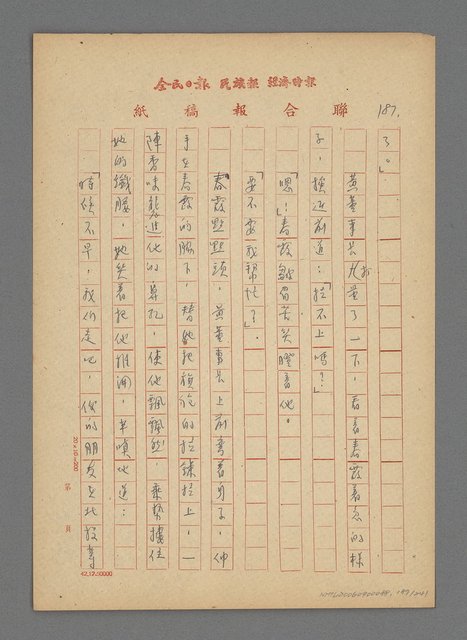 全民日報 民族報 經濟時報
聯合報稿紙
187.
了。」
黃董事長打量了一下，看着春霞着急的樣
子，挨近前道：「拉不上嗎？」
「嗯！」春霞皺眉苦笑瞪着他。
「要不要我幫忙？」
春霞點點頭，黃董事長上前彎着身子，伸
手在春霞的腋下，替她把旗袍的拉鍊拉上，一
陣香味鑽進他的鼻孔，使他飄飄然，乘勢摟住
她的纖腰，她笑着把他推開，半嗔他道：
「時候不早，我們走吧，你的朋友在北投等
20×10=200
第 頁
42.12.50000
NMTL20060900048, 187/241